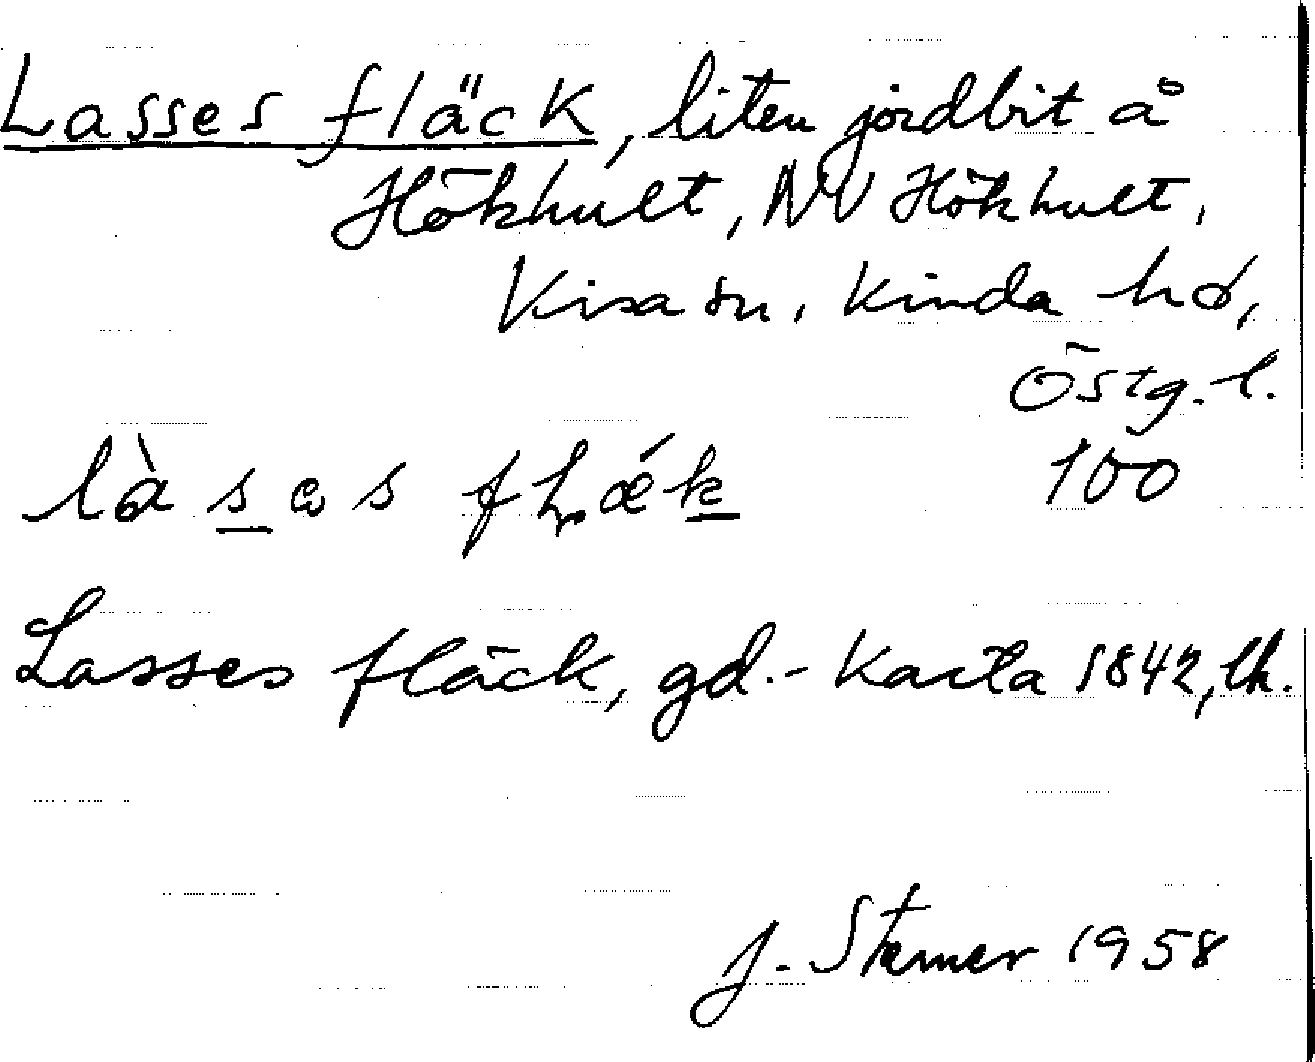 Lasses fläck, liten jordbit å
Hökhult, NV Hökhult,
Kisa sn, Kinda hd,
Östg. l.
100
Lasses fläck, gd. - Karta 1842, lh.
J. Stemer 1958